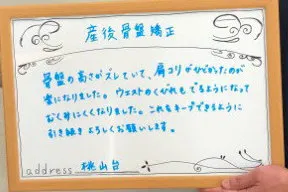 産後骨盤矯正
骨盤の高さがズレていて、肩コリがひどかったのが
楽になりました。ウエストのくびれもでるようになって
むくみにくくなりました。これをキープできるように
引き続きよろしくお願いします。
address 桃山台